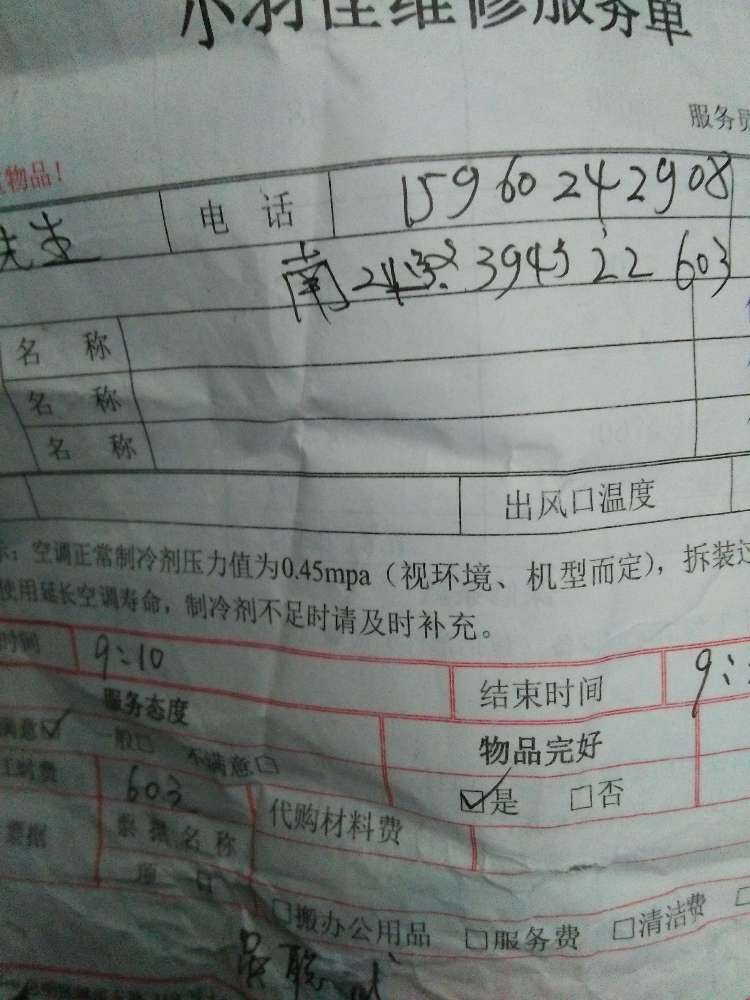 小羽佳维修服务单
服务员
物品！
先生 电 话 15960242908
394号 22 603
名 称
名 称
名 称
出风口温度
示：空调正常制冷剂压力值为0.45mpa（视环境、机型而定），拆装过
使用延长空调寿命，制冷剂不足时请及时补充。
时间 9:10 结束时间 9:
服务态度 物品完好
满意☑ 一般□ 不满意□ ☑是 □否
工时费 603 代购材料费
票据 票据名称
项 目 □搬办公用品 □服务费 □清洁费